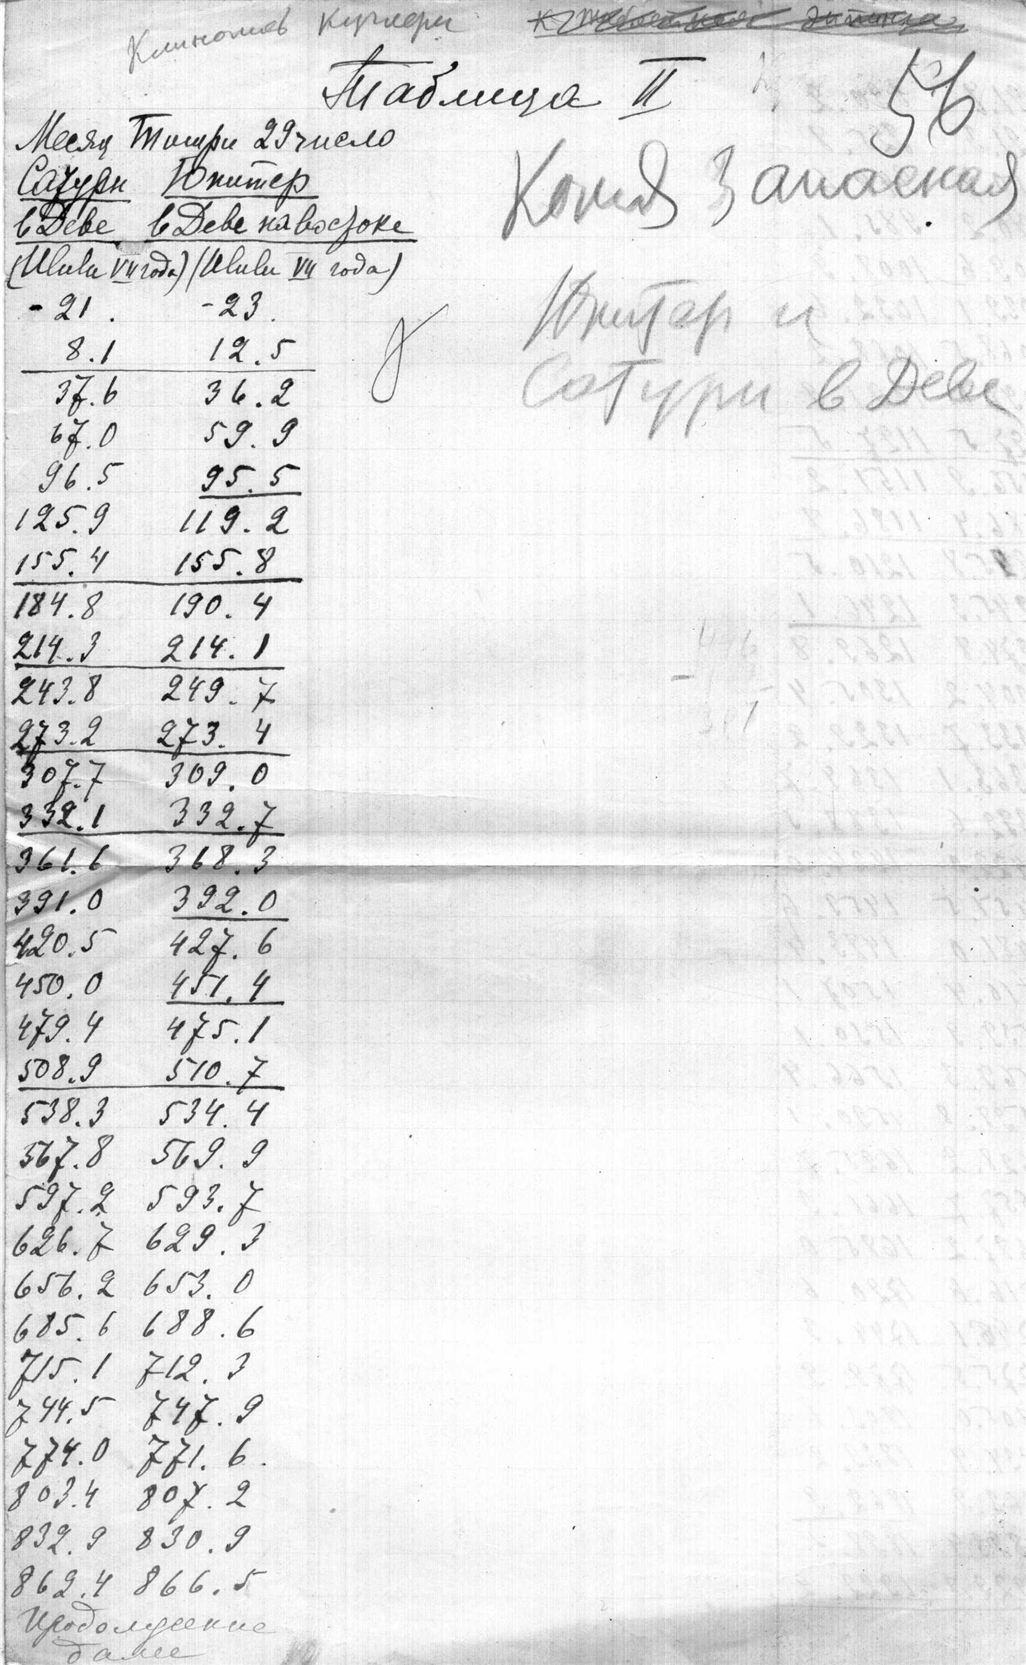 Таблица II
56
Месяц Тишри 29 число
Копия Запасная
Сатурн Юпитер
в Деве в Деве на востоке
(Июли VII года) (Июли VII года)
Юпитер и
Сатурн в Деве
-21. -23.
8.1 12.5
37.6 36.2
67.0 59.9
96.5 95.5
125.9 119.2
155.4 155.8
184.8 190.4
214.3 214.1
243.8 249.7
273.2 273.4
307.7 309.0
332.1 332.7
361.6 368.3
391.0 392.0
420.5 427.6
450.0 451.4
479.4 475.1
508.9 510.7
538.3 534.4
567.8 569.9
597.2 593.7
626.7 629.3
656.2 653.0
685.6 688.6
715.1 712.3
744.5 747.9
774.0 771.6.
803.4 807.2
832.9 830.9
862.4 866.5
Продолжение
далее